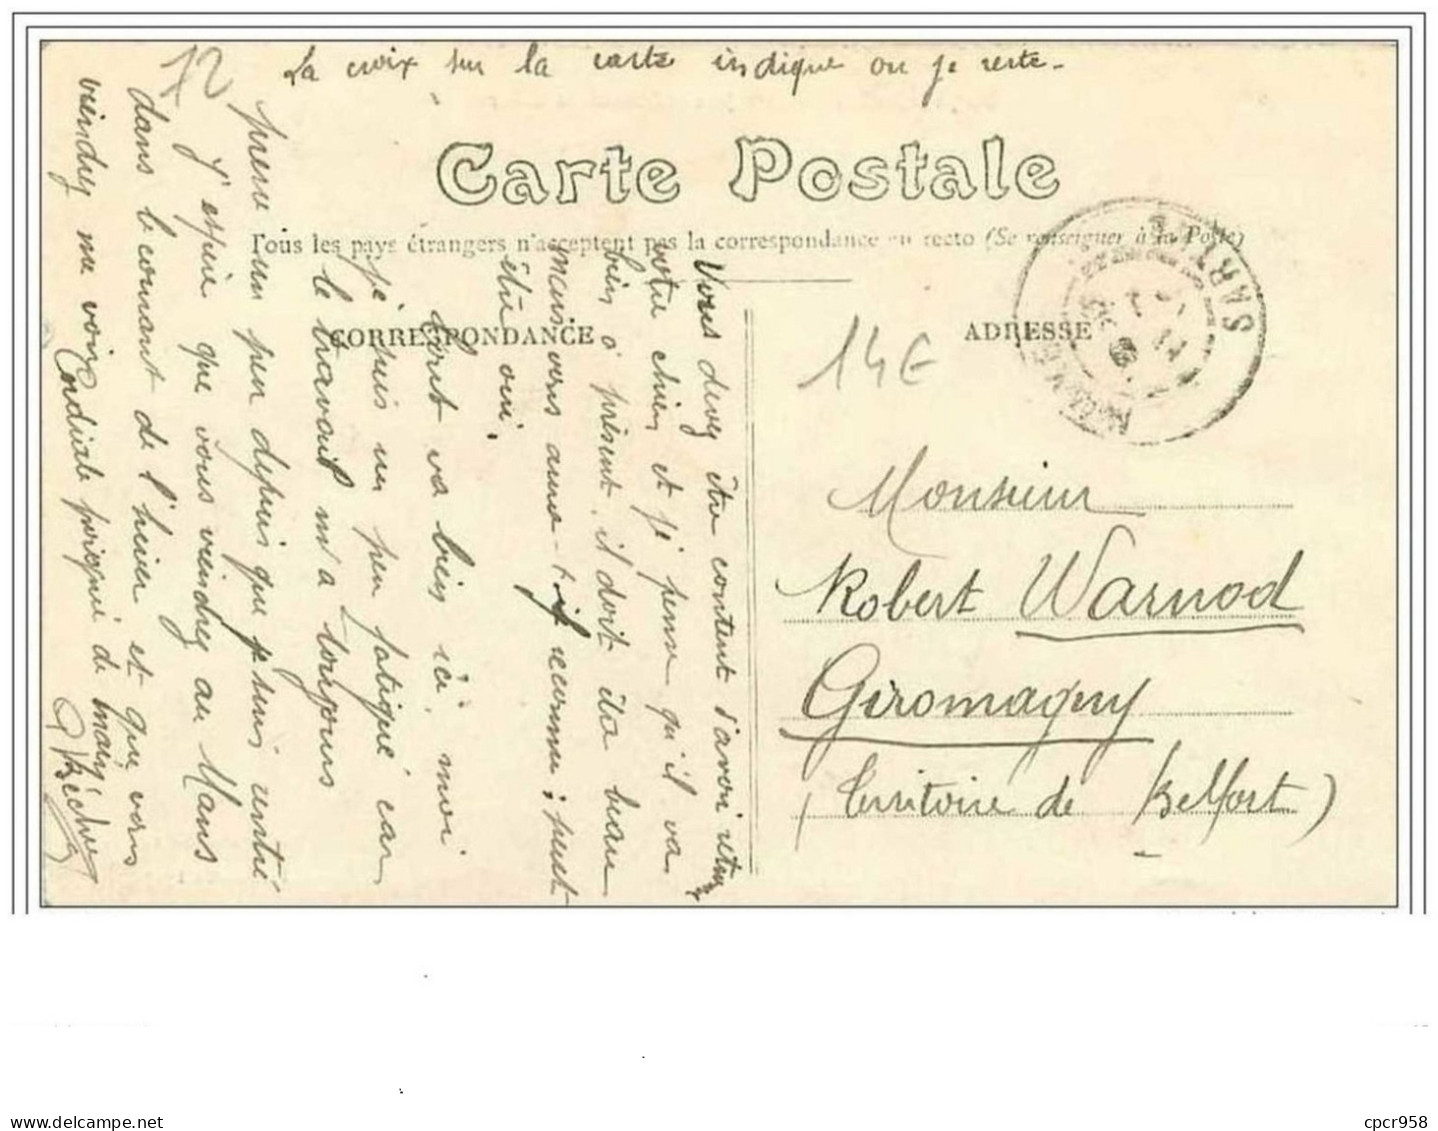 La croix sur la carte indique ou je reste -
72
Carte Postale
Tous les pays étrangers n'acceptent pas la correspondance au recto (Se renseigner à la Poste)
CORRESPONDANCE
ADRESSE
SARTHE
14€
Monsieur
Robert Warnod
Giromagny
(Territoire de Belfort)
Vous devez être content d'avoir
votre chien et je pense qu'il va
bien à présent, il doit être beau
mais vous aura-t-il reconnu ; peut
être oui.
Tout va bien ici, moi
je suis un peu fatigué car
le travail m'a toujours
pressé un peu depuis que je suis rentré
J'espère que vous viendrez au Mans
dans le courant de l'hiver et que vous
viendrez me voir
Cordiale poignée de main
cpcr958